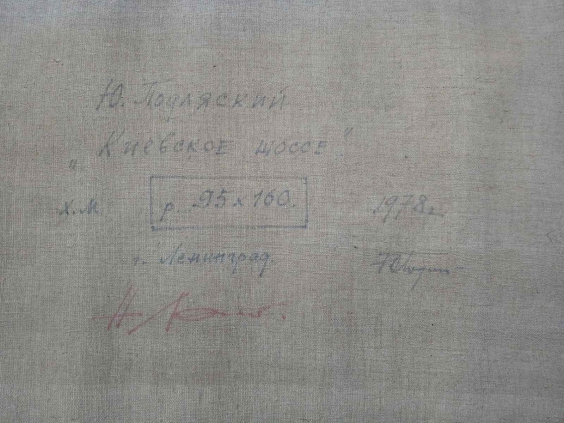 Ю. Подляский
„Киевское шоссе"
х.м. р. 95 x 160. 1978 г.
г. Ленинград.